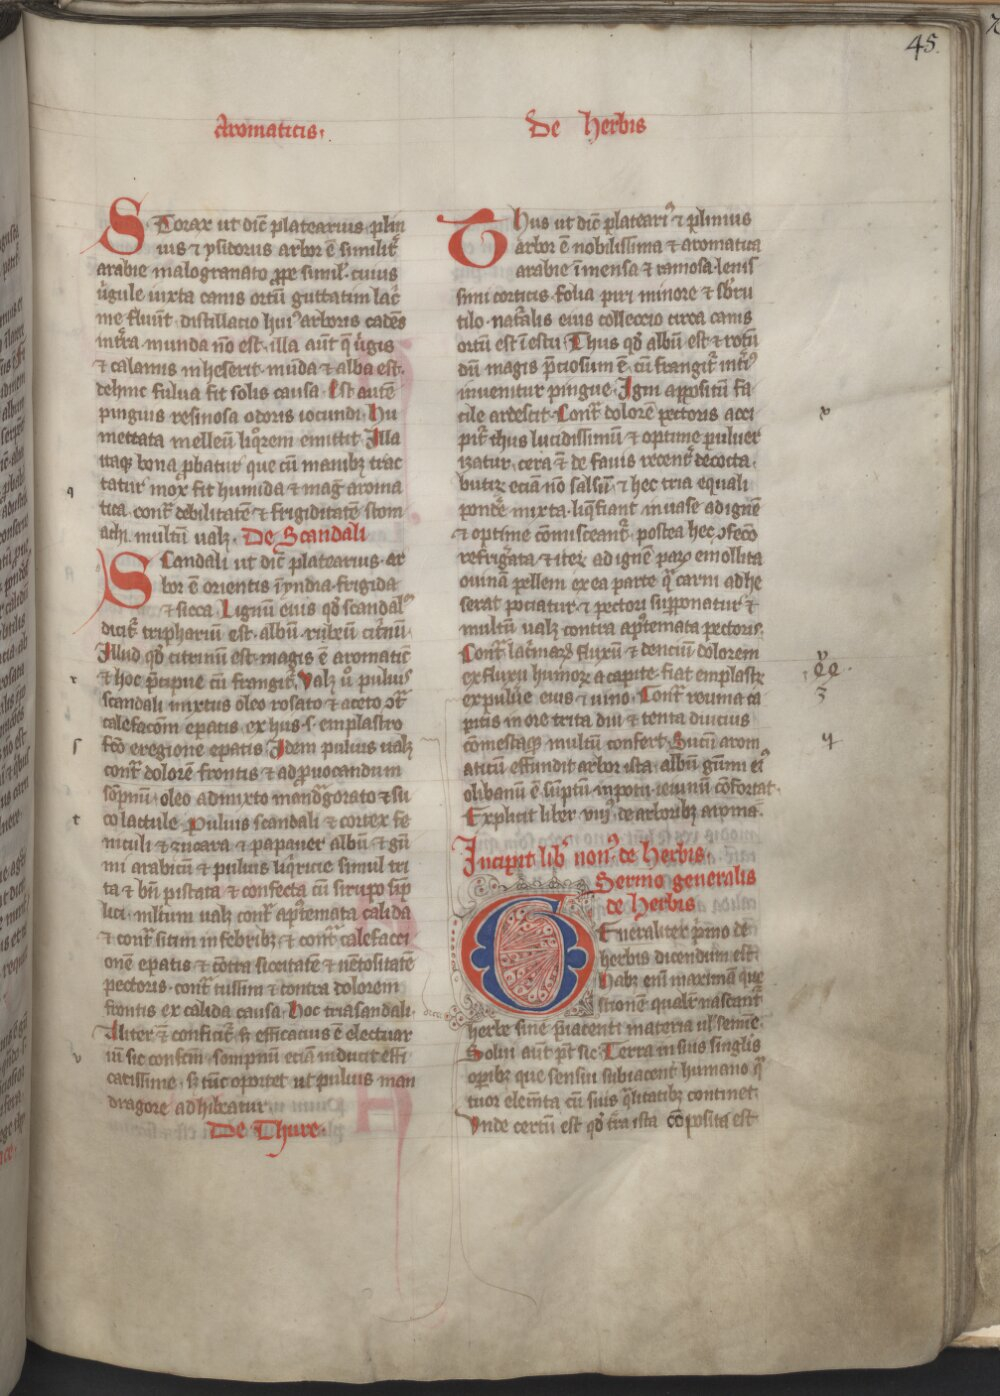 45
Aromaticis.
De herbis
STorax ut dic̄ platearius plin
ius ⁊ ysidorus arbor ē similit̄
arabie malogranato ꝓpe simil̕. cuius
ũgule iuxta canis ortū guttatim lac̄
me fluūt. distillacio hui᷒ arboris cadēs
in tr̄a munda nō est. illa aūt q̄ ũgis
⁊ calamis inheserit. mūda ⁊ alba est.
dehinc fulua fit solis causa. Est autē
pinguis resinosa odoris iocundi. Hu
mectata melleū liq̄orem emittit. Illa
itaqꝫ bona ꝓbatur que cū manibꝫ trac
tatur mox fit humida ⁊ maḡ aroma
tica. contͣ debilitatē ⁊ frigiditatē stom
achi. multū ualꝫ. De Scandali
SCandali ut dic̄ platearius. ar
bor ē orientis in yndia. frigida
⁊ sicca. Lignū eius qd̕ scandal᷒
dicit̄ triphariū est. albū. rubeū. citnū.
Illud qd̕ citrinū est. magis ē aromatic̄
⁊ hoc p̄cipue cū frangit̄. Valꝫ ũ puluis
scandali mixtus oleo rosato ⁊ aceto ꝯtͣ
calefacōm epatis ex hus .s. emplastro
fc̄o e regione epatis. Idem puluis ualꝫ
contͣ dolorē frontis ⁊ ad ꝓuocandum
sōpnū. oleo admixto mandᵃgorato ⁊ su
co lactule. Puluis scandali ⁊ cortex fe
niculi ⁊ zucara ⁊ papauer albū ⁊ gū
mi arabicū ⁊ puluis liq̄ricie simul tri
ta ⁊ bn̄ pistata ⁊ confecta cū sirupo sīp
lici. mltum ualꝫ contͣ apͦtemata calida
⁊ contͣ sitim in febribꝫ ⁊ contͣ calefacci
onē epatis ⁊ cōtra siccitatē ⁊ uētositatē
pectoris. contͣ tussim ⁊ contra dolorem
frontis ex calida causa. Hoc triasandali.
Aliter ē conficit̄ s; efficacius ē electuar
iū sic confcm̄. sompnū eciā inducit effi
catissime. s; tūc oportet ut puluis man
dragore adhibeatur.
De Thure.
THus ut dic̄ platearī ⁊ plinius
arbor ē nobilissima ⁊ aromatica
arabie īmensa ⁊ ramosa. lenis
simi corticis. folia piri minore ⁊ sb̕ru
tilo. natͣalis eius colleccio circa canis
ortū est ī estu. Thus qd̕ albū est ⁊ rotū
dū magis p̄ciosum ē. cū frangit̄ intī᷒
inuenitur pingue. Igni appositū fa
cile ardescit. Contͣ dolorē pectoris acci
pit̄ thus lucidissimū ⁊ optime puluer
izatur. cera ⁊ de fauis recent̄ decocta.
butiꝝ eciā nō salsū. ⁊ hec tria equali
pondē mixta. liq̄fiant in uase ad ignē
⁊ optime cōmisceant̄. postea hec ꝯfecō
refrigata ⁊ iteꝝ ad ignē paꝝ emollita
ouinā pellem ex ea parte q̄ carni adhe
serat pociatur. ⁊ pectori supponatur ⁊
multū ualꝫ contra apͦtemata pectoris.
Contͣ lac̄maꝝ fluxū ⁊ denciū dolorem
ex fluxu humoꝝ a capite. fiat emplastꝝ
ex puluē eius ⁊ uino. Contͣ reuma ca
pitis in ore trita diu ⁊ tenta diucius
comestaqꝫ multū confert. Sucū arom
aticū effundit arbor ista. albū gūmi ei᷒
olibanū ē. sūptū in potu ieiunū cōfortat.
Explicit liber viij᷒ de arboribꝫ aroma.
Incipit lib̕ non᷒ de herbis.
Sermo generalis
de herbis
GEneraliter p̄imo de
herbis dicendum est.
habꝫ enī maximā que
stionē qualit̄ nascant̄
herbe sine p̄iacenti materia ul̕ semīe.
Solui aūt pn̄t sic. Terra in suis singlis
oꝑibꝫ que sensui subiacent humano. qͣ
tuor elemēta cū suis q̄litatibꝫ continet.
Vnde certū est qd̕ tr̄a ista cōposita est